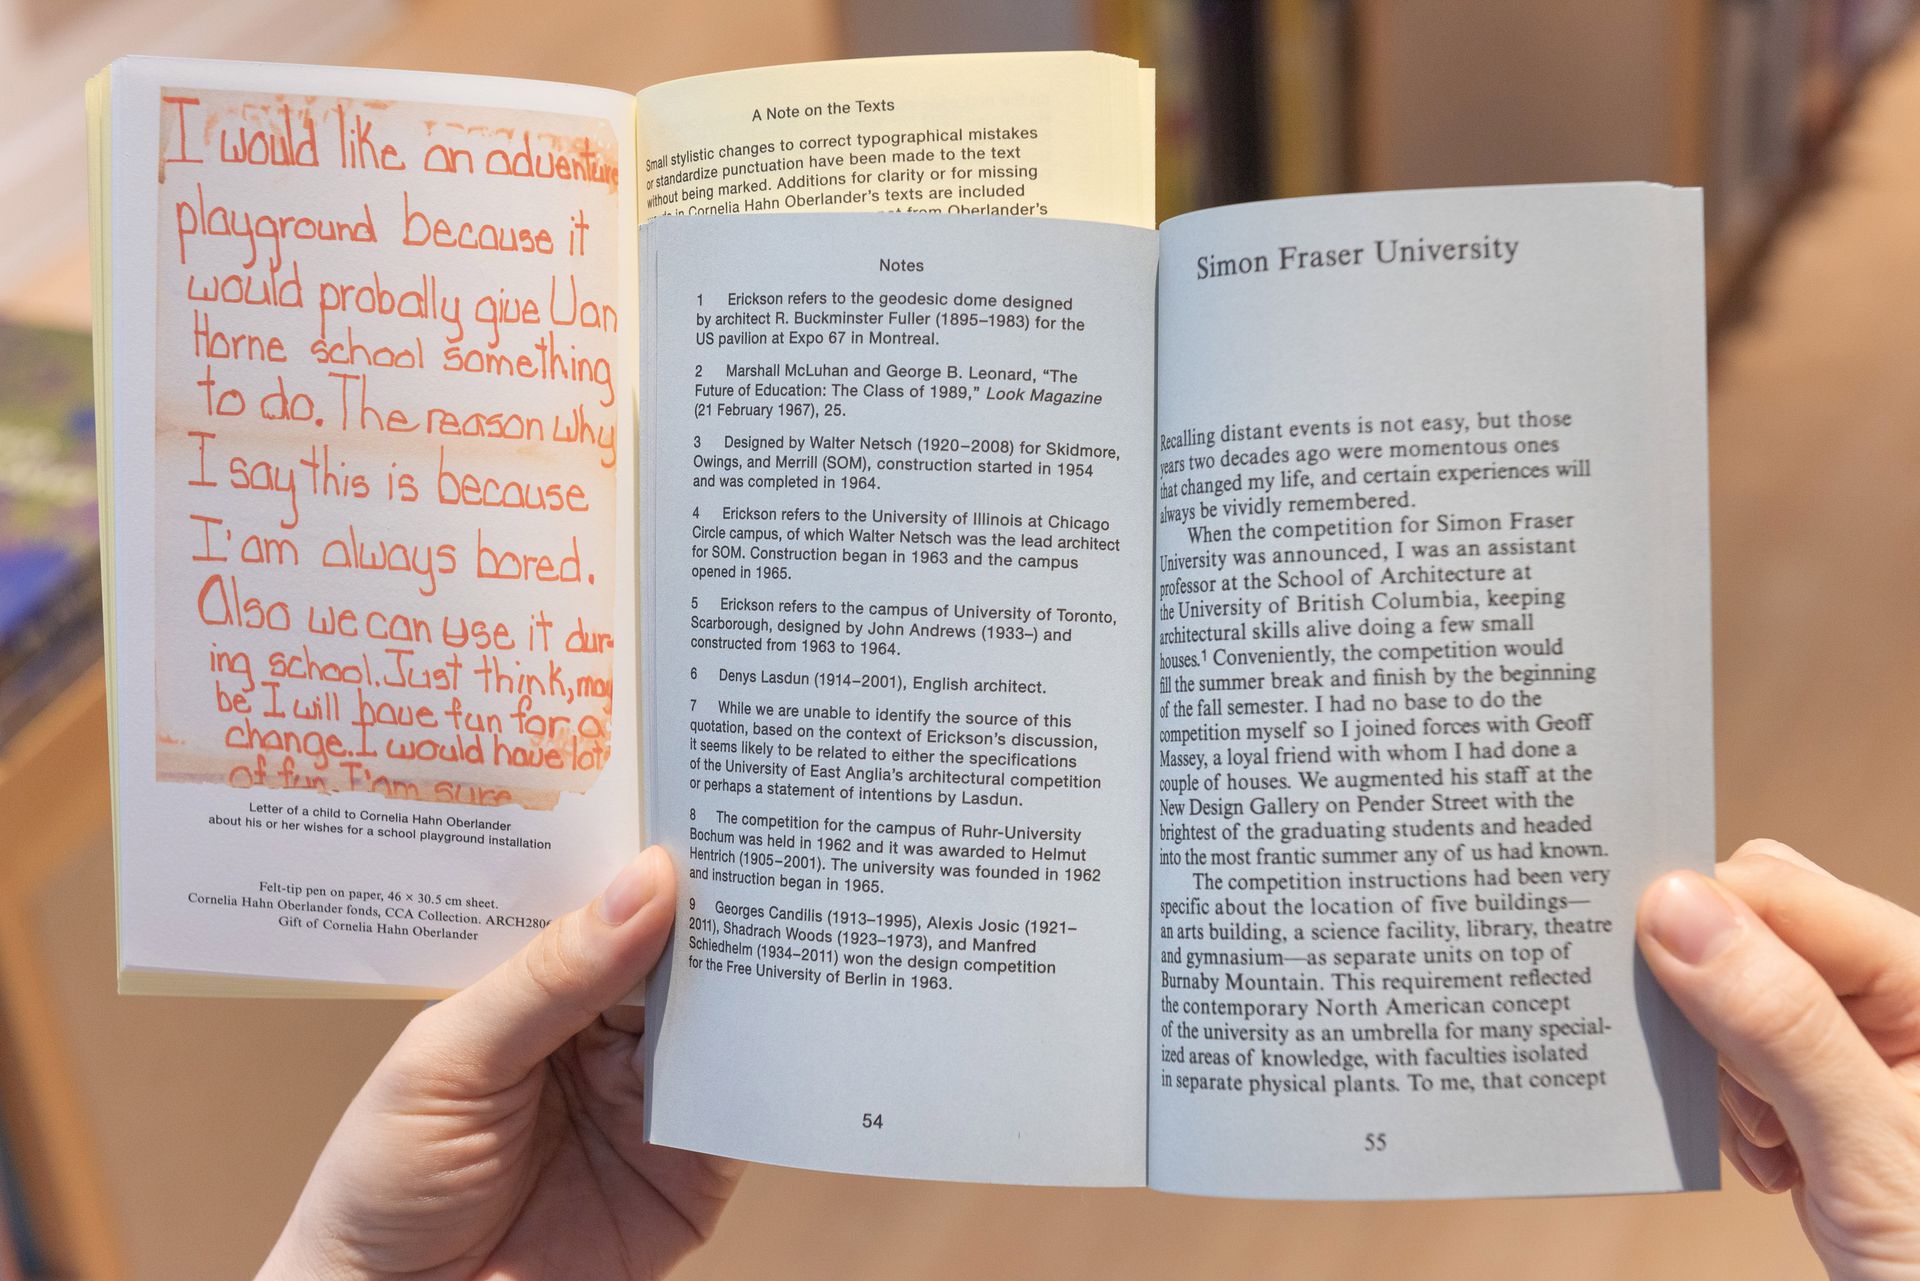 I would like an adventure
playground because it
would probally give Van
Horne school something
to do. The reason why
I say this is because
I'am always bored.
Also we can use it dur-
ing school. Just think, may
be I will have fun for a
change. I would have lots
of fun. I'am sure
Letter of a child to Cornelia Hahn Oberlander
about his or her wishes for a school playground installation
Felt-tip pen on paper, 46 × 30.5 cm sheet.
Cornelia Hahn Oberlander fonds, CCA Collection.
Gift of Cornelia Hahn Oberlander
A Note on the Texts
Small stylistic changes to correct typographical mistakes
or standardize punctuation have been made to the text
without being marked. Additions for clarity or for missing
in Cornelia Hahn Oberlander's texts are included
from Oberlander's
Notes
1 Erickson refers to the geodesic dome designed
by architect R. Buckminster Fuller (1895–1983) for the
US pavilion at Expo 67 in Montreal.
2 Marshall McLuhan and George B. Leonard, “The
Future of Education: The Class of 1989,” Look Magazine
(21 February 1967), 25.
3 Designed by Walter Netsch (1920–2008) for Skidmore,
Owings, and Merrill (SOM), construction started in 1954
and was completed in 1964.
4 Erickson refers to the University of Illinois at Chicago
Circle campus, of which Walter Netsch was the lead architect
for SOM. Construction began in 1963 and the campus
opened in 1965.
5 Erickson refers to the campus of University of Toronto,
Scarborough, designed by John Andrews (1933–) and
constructed from 1963 to 1964.
6 Denys Lasdun (1914–2001), English architect.
7 While we are unable to identify the source of this
quotation, based on the context of Erickson's discussion,
it seems likely to be related to either the specifications
of the University of East Anglia's architectural competition
or perhaps a statement of intentions by Lasdun.
8 The competition for the campus of Ruhr-University
Bochum was held in 1962 and it was awarded to Helmut
Hentrich (1905–2001). The university was founded in 1962
and instruction began in 1965.
9 Georges Candilis (1913–1995), Alexis Josic (1921–
2011), Shadrach Woods (1923–1973), and Manfred
Schiedhelm (1934–2011) won the design competition
for the Free University of Berlin in 1963.
54
Simon Fraser University
Recalling distant events is not easy, but those
years two decades ago were momentous ones
that changed my life, and certain experiences will
always be vividly remembered.
When the competition for Simon Fraser
University was announced, I was an assistant
professor at the School of Architecture at
the University of British Columbia, keeping
architectural skills alive doing a few small
houses.1 Conveniently, the competition would
fill the summer break and finish by the beginning
of the fall semester. I had no base to do the
competition myself so I joined forces with Geoff
Massey, a loyal friend with whom I had done a
couple of houses. We augmented his staff at the
New Design Gallery on Pender Street with the
brightest of the graduating students and headed
into the most frantic summer any of us had known.
The competition instructions had been very
specific about the location of five buildings—
an arts building, a science facility, library, theatre
and gymnasium—as separate units on top of
Burnaby Mountain. This requirement reflected
the contemporary North American concept
of the university as an umbrella for many special-
ized areas of knowledge, with faculties isolated
in separate physical plants. To me, that concept
55